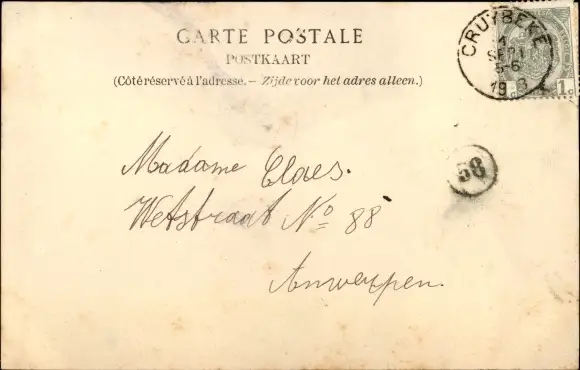 CARTE POSTALE
POSTKAART
(Côté réservé à l'adresse. – Zijde voor het adres alleen.)
CRUYBEKE
SEPT
5-6
19
1c
58
Madame Claes.
Wetstraat No 88
Anwerpen.